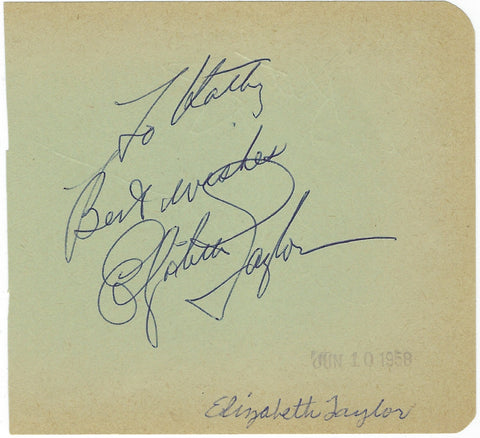 To Kathy
Best wishes
Elizabeth Taylor
JUN 10 1958
Elizabeth Taylor